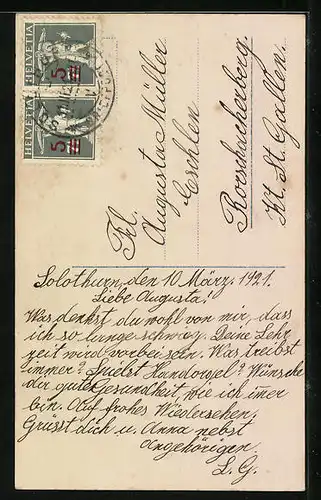 HELVETIA
5
HELVETIA
5
Frl.
Augusta Müller
Rorschacherberg.
Kt. St. Gallen.
Solothurn, den 10 März. 1921.
Liebe Augusta!
Was denkst du wohl von mir, dass
ich so lange schweig. Deine Lehr
zeit wird vorbei sein. Was treibst
immer? Spielst Handorgel? Wünsche
dir gute Gesundheit, wie ich imer
bin. Auf frohes Wiedersehen.
Grüsst dich u. Anna nebst
Angehörigen
L. G.